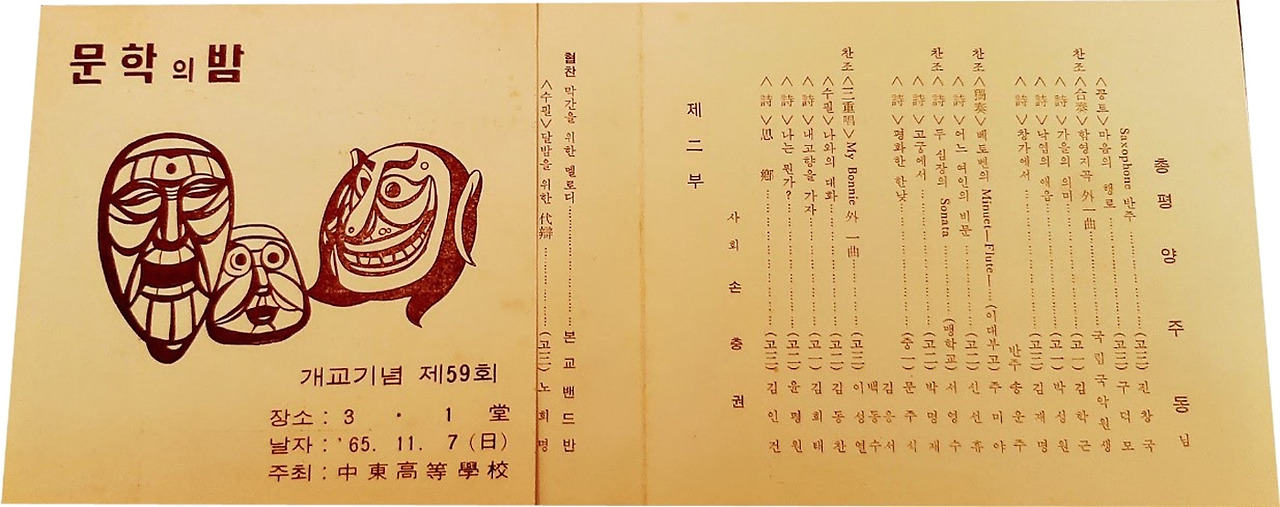 문학의밤
개교기념 제59회
장소 : 3 · 1 堂
날자 : '65. 11. 7 (日)
주최 : 中東高等學校
<수필>달밤을 위한 代辯 (고二) 노희명
협찬 막간을 위한 멜로디 본교밴드반
제二부
사회 손충권
<詩>思鄕 (고三) 김인건
<詩>나는 뭔가? (고二) 윤평원
<詩>내고향을 가자 (고一) 김희태
<수필>나와의 대화 (고二) 김동찬
찬조<三重唱>My Bonnie 外 一曲 (고三) 이성연
백동수
김응서
<詩>평화한 한낮 (중一) 문주식
<詩>고궁에서 (고二) 박명재
찬조<詩>두 심장의 Sonata (맹학교) 서영수
<詩>어느 여인의 비문 (고二) 신선휴
찬조<獨奏>베토벤의 Minuet—Flute— (이대부고) 주미야
반주 송운주
<詩>창가에서 (고三) 김재명
<詩>낙엽의 애음 (고二) 박성원
<詩>가을의 의미 (고一) 김학근
찬조<合奏>함영지곡 外 一曲 국립국악원생
<꽁트>마음의 행로 (고二) 구덕모
Saxophone 반주 (고三) 진창국
총평 양주동님